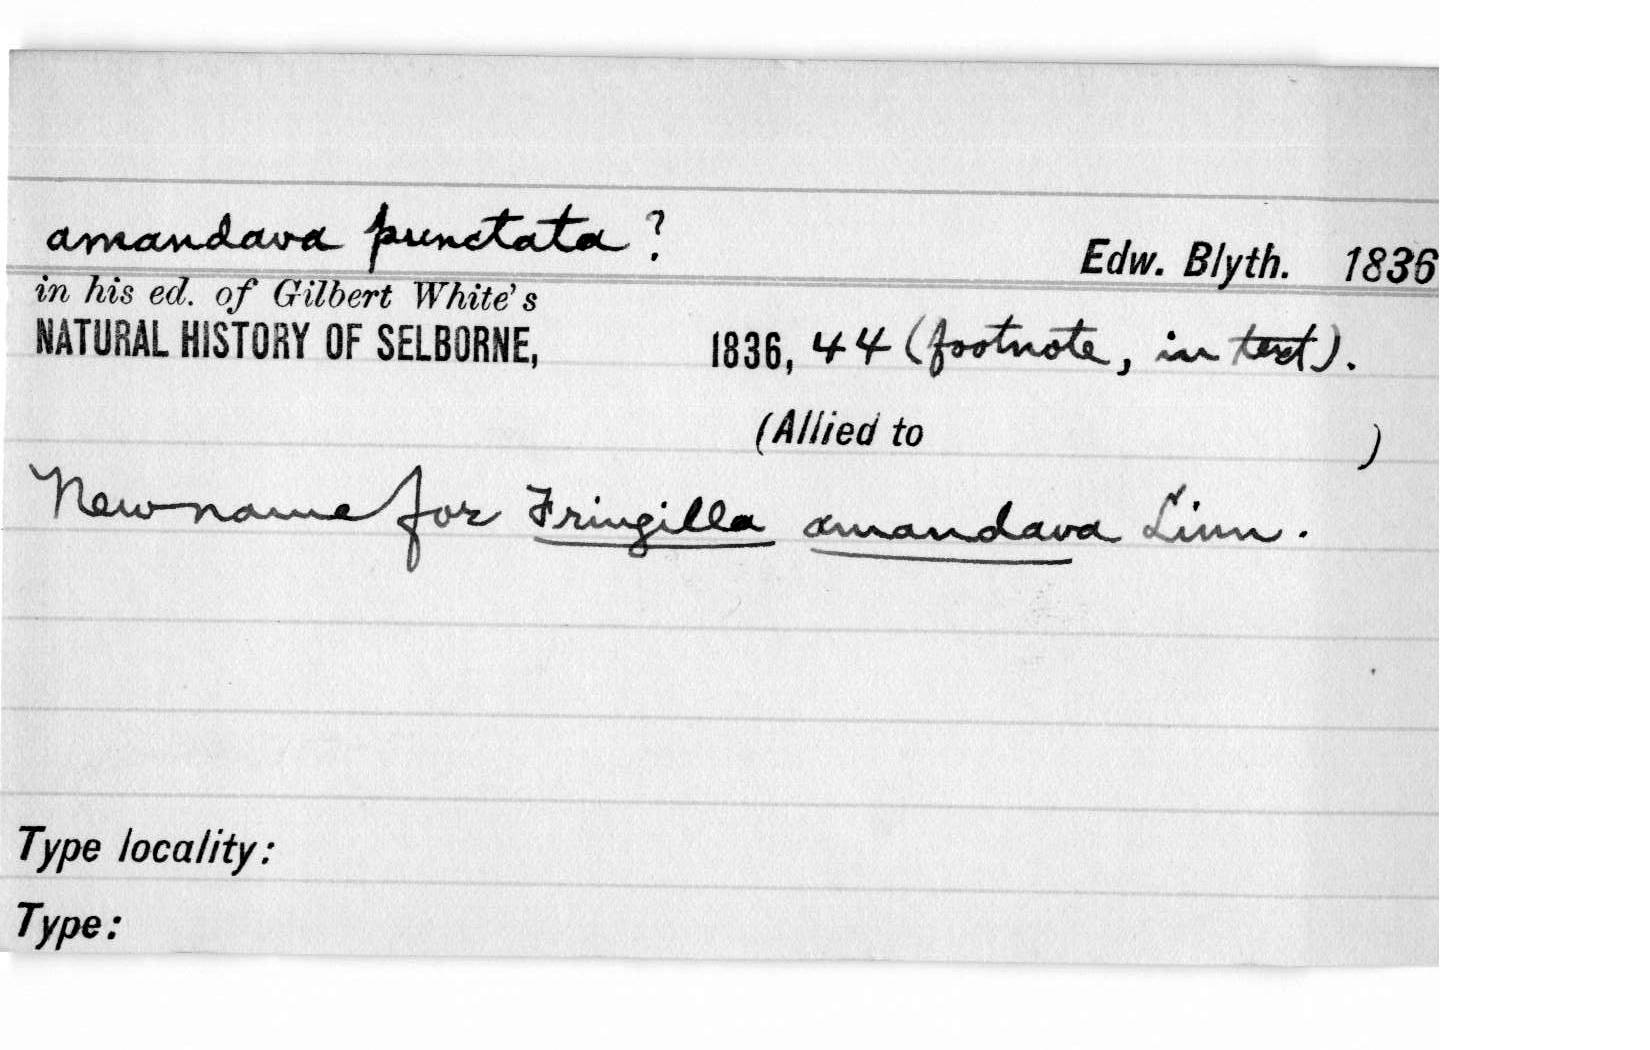 amandava punctata ? Edw. Blyth. 1836
in his ed. of Gilbert White's
NATURAL HISTORY OF SELBORNE, 1836, 44 (footnote, in text).
(Allied to )
New name for Fringilla amandava Linn.
Type locality:
Type: